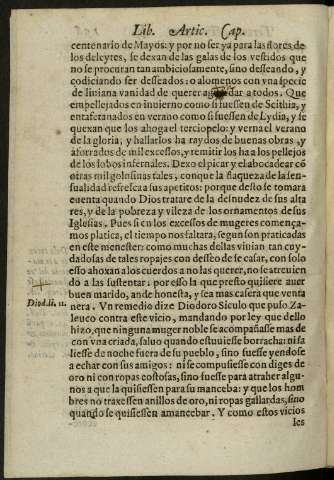 Lib. Artic. Cap.
centenario de Mayos: y por no ser ya para las flores de
los deleytes, se dexan de las galas de los vestidos que
no se procuran tan ambiciosamente, sino desseando, y
codiciando ser desseados: o alomenos con vna specie
de liuiana vanidad de querer a todos. Que
empellejados en inuierno como si fuessen de Scithia, y
entafetanados en verano como si fuessen de Lydia, y se
quexan que los ahoga el terciopelo: y verna el verano
de la gloria, y hallarlos ha raydos de buenas obras, y
aforrados de mil excessos, y remitir los ha a los pellejos
de los lobos infernales. Dexo el picar y el abocadear cõ
otras mil golosinas tales, conque la flaqueza de la sen-
sualidad refresca sus apetitos: porque desto se tomara
cuenta quando Dios tratare de la desnudez de sus alta
res, y de la pobreza y vileza de los ornamentos de sus
Iglesias. Pues si en los excessos de mugeres comença-
mos platica, el tiempo nos faltara, segun son praticadas
en este menester: como muchas dellas viuian tan cuy-
dadosas de tales ropajes con desseo de se casar, con solo
esso ahoxan a los cuerdos a no las querer, no se atreuien
do a las sustentar: por esso la que presto quisiere auer
buen marido, ande honesta, y sea mas casera que venta
Diod. li. 11. nera. Vn remedio dize Diodoro Siculo que puso Za-
leuco contra este vicio, mandando por ley que dello
hizo, que ninguna muger noble se acompañasse mas de
con vna criada, saluo quando estuuiesse borracha: ni sa
liesse de noche fuera de su pueblo, sino fuesse yendose
a echar con sus amigos: ni se compusiesse con diges de
oro ni con ropas costosas, sino fuesse para atraher algu-
nos a que la quisiessen para su manceba: y que los hom
bres no traxessen anillos de oro, ni ropas gallardas, sino
quando se quisiessen amancebar. Y como estos vicios
les